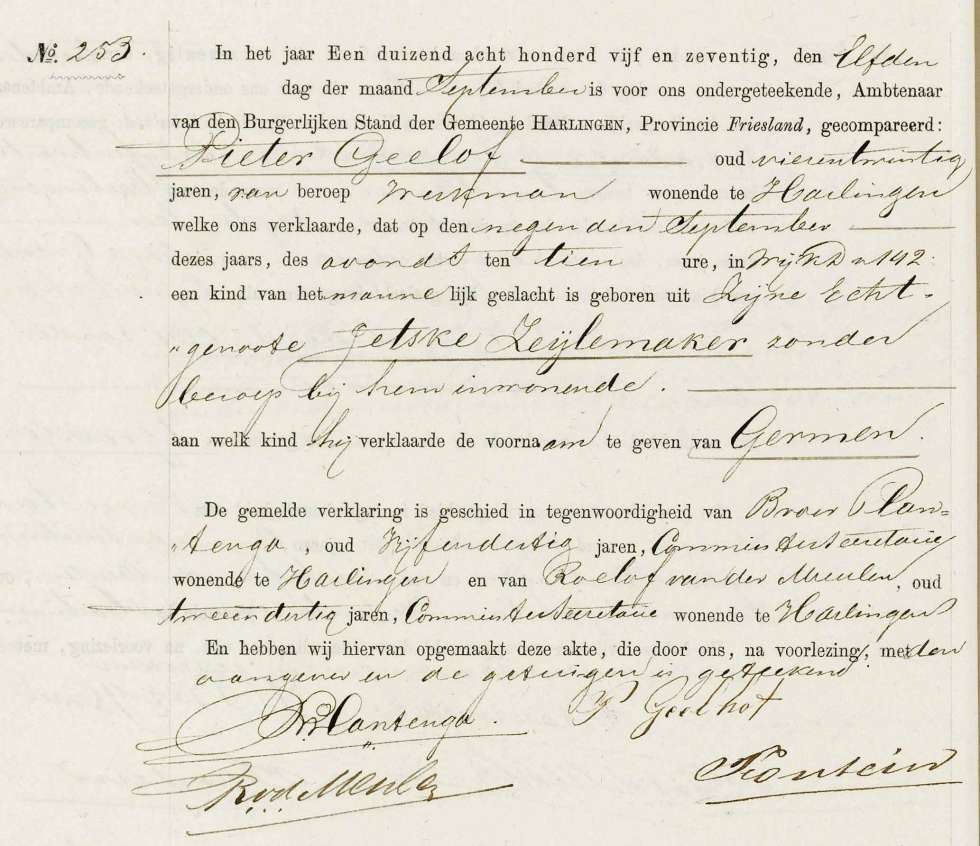 No. 253.
In het jaar Een duizend acht honderd vijf en zeventig, den Elfden
dag der maand September is voor ons ondergeteekende, Ambtenaar
van den Burgerlijken Stand der Gemeente HARLINGEN, Provincie Friesland, gecompareerd:
Pieter Geelof oud vierentwintig
jaren, van beroep Werkman wonende te Harlingen
welke ons verklaarde, dat op den negenden September
dezes jaars, des avonds ten tien ure, in Wijk D n 142:
een kind van het manne lijk geslacht is geboren uit Zijne Echt-
"genoote Jetske Zeijlemaker zonder
beroep bij hem inwonende.
aan welk kind hij verklaarde de voornaam te geven van Germen.
De gemelde verklaring is geschied in tegenwoordigheid van Broer Plan-
"tenga, oud Vijfendertig jaren, Commies ter Secretarie
wonende te Harlingen en van Roelof van der Meulen, oud
tweeendertig jaren, Commies ter Secretarie wonende te Harlingen
En hebben wij hiervan opgemaakt deze akte, die door ons, na voorlezing, met den
aangever en de getuigen is geteekend
Plantenga. P Geelhof
R v d Meulen Fontein